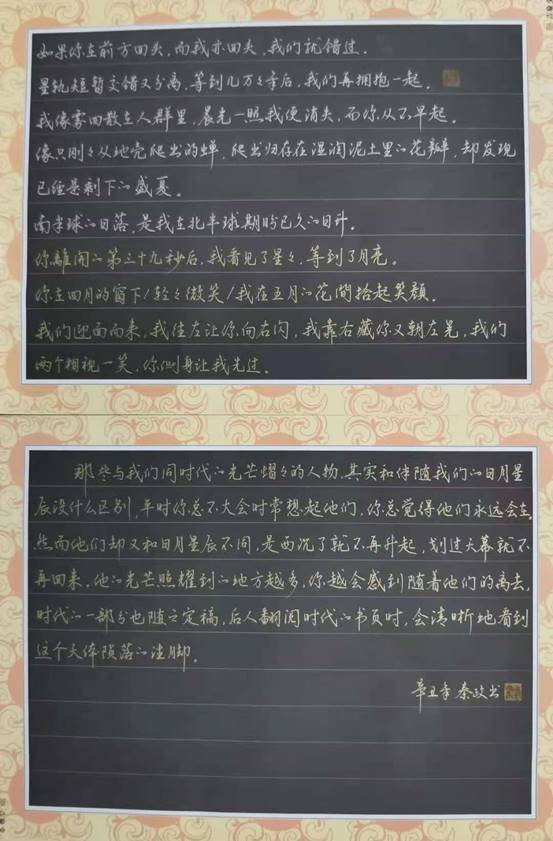 如果你在前方回头，而我亦回头，我们就错过。
星轨短暂交错又分离，等到几万万年后，我们再拥抱一起。
我像雾回散在人群里，晨光一照我便消失，而你从不早起。
像只刚刚从地壳爬出的蝉，爬出归存在湿润泥土里的花瓣，却发现
已经是剩下的盛夏。
南半球的日落，是我在北半球期盼已久的日升。
你離開的第三十九秒后，我看见了星星，等到了月亮。
你在四月的窗下/轻轻微笑/我在五月的花間拾起笑顏。
我们迎面而来，我往左让你向右闪，我靠右藏你又朝左晃，我们
两个相视一笑，你侧身让我先过。
那些与我们同时代的光芒熠熠的人物，其实和伴随我们的日月星
辰没什么区别，平时你总不大会时常想起他们，你总觉得他们永远会在，
然而他们却又和日月星辰不同，是西沉了就不再升起，划过天幕就不
再回来。他的光芒照耀到的地方越多，你越会感到随着他们的离去，
时代的一部分也随之定稿，后人翻阅时代的书页时，会清晰地看到
这个天体陨落的注脚。
辛丑年 秦政书